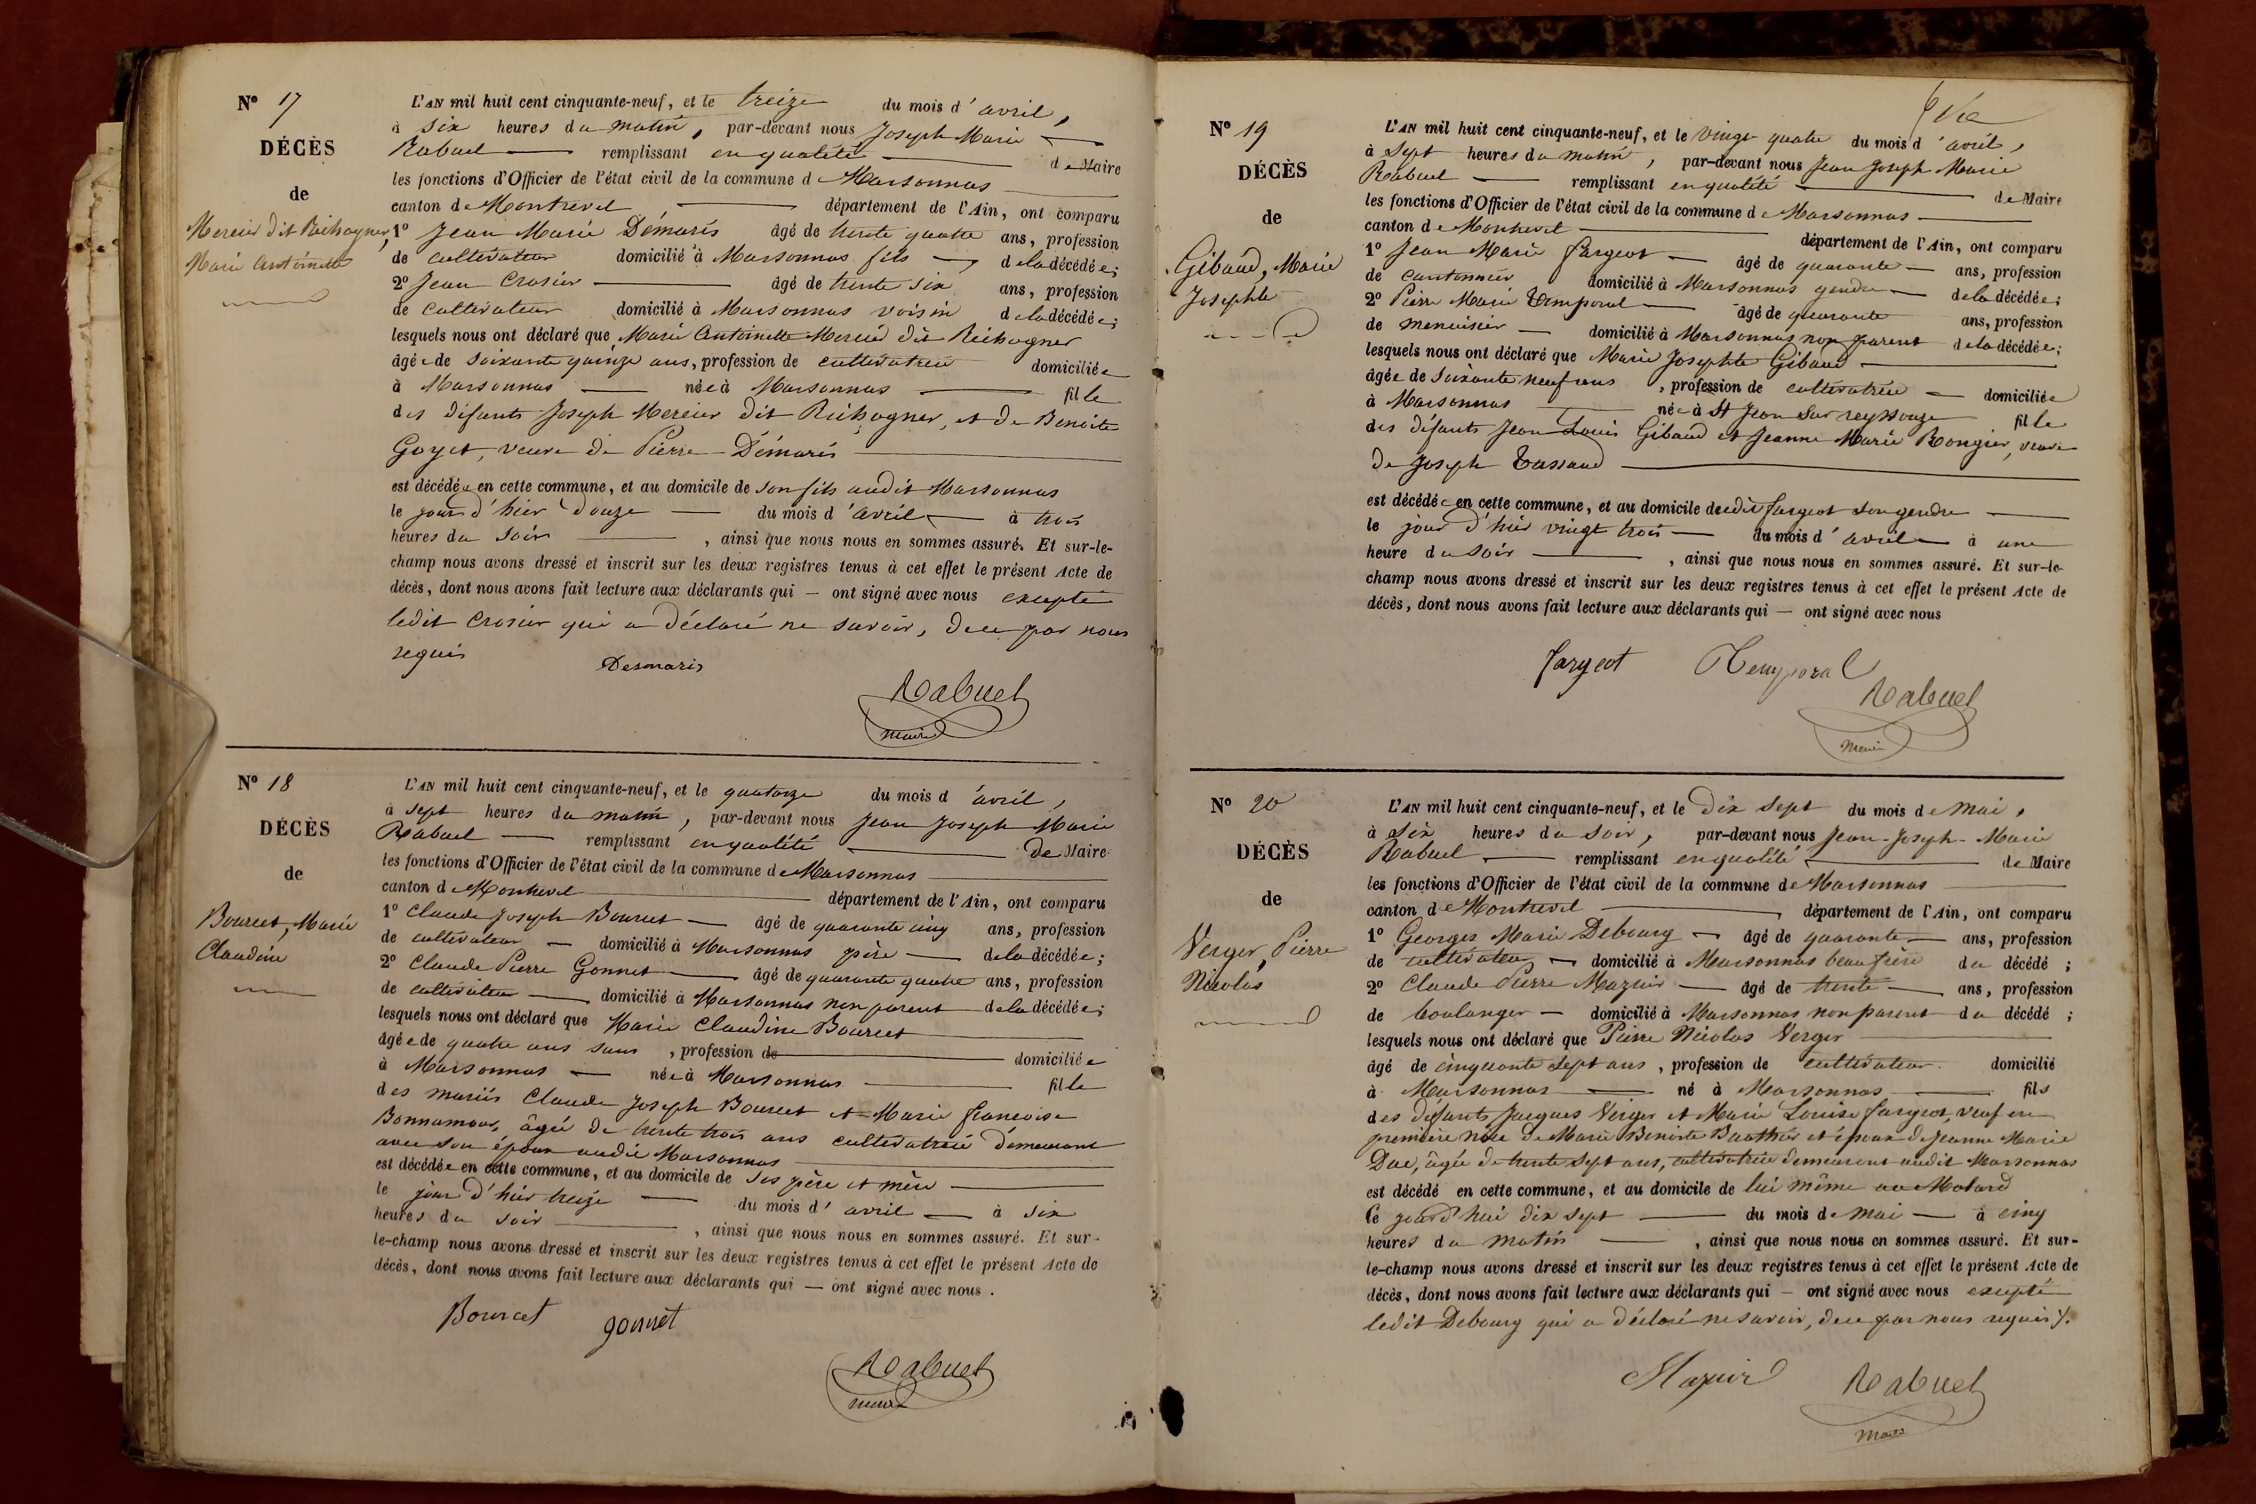 N° 17
DÉCÈS
de
Mercier dit Richogner,
Marie Antoinette
L'AN mil huit cent cinquante-neuf, et le treize du mois d'avril,
à six heures du matin, par-devant nous Joseph Marie
Rabuel remplissant en qualité de Maire
les fonctions d'Officier de l'état civil de la commune de Marsonnas
canton de Montrevel département de l'Ain, ont comparu
1° Jean Marie Démaris âgé de trente quatre ans, profession
de cultivateur domicilié à Marsonnas fils de la décédée;
2° Jean Crosier âgé de trente six ans, profession
de cultivateur domicilié à Marsonnas voisin de la décédée;
lesquels nous ont déclaré que Marie Antoinette Mercier dit Richogner
âgée de soixante quinze ans, profession de cultivatrice domiciliée
à Marsonnas née à Marsonnas fille
des défunts Joseph Mercier dit Richogner, et de Benoite
Goyet, veuve de Pierre Démaris
est décédée en cette commune, et au domicile de son fils audit Marsonnas
le jour d'hier douze du mois d'avril à trois
heures du soir, ainsi que nous nous en sommes assuré. Et sur-le-
champ nous avons dressé et inscrit sur les deux registres tenus à cet effet le présent Acte de
décès, dont nous avons fait lecture aux déclarants qui — ont signé avec nous excepté
ledit Crosier qui a déclaré ne savoir, de ce par nous
requis
Desmaris
Rabuel
maire
N° 18
DÉCÈS
de
Bourcet, Marie
Claudine
L'AN mil huit cent cinquante-neuf, et le quatorze du mois d'avril,
à sept heures du matin, par-devant nous Jean Joseph Marie
Rabuel remplissant en qualité de Maire
les fonctions d'Officier de l'état civil de la commune de Marsonnas
canton de Montrevel département de l'Ain, ont comparu
1° Claude Joseph Bourcet âgé de quarante cinq ans, profession
de cultivateur domicilié à Marsonnas père de la décédée;
2° Claude Pierre Gonnet âgé de quarante quatre ans, profession
de cultivateur domicilié à Marsonnas non parent de la décédée;
lesquels nous ont déclaré que Marie Claudine Bourcet
âgée de quatre ans sans, profession de domiciliée
à Marsonnas née à Marsonnas fille
des mariés Claude Joseph Bourcet et Marie francoise
Bonnamour, âgée de trente trois ans cultivatrice demeurant
avec son époux audit Marsonnas
est décédée en cette commune, et au domicile de ses père et mère
le jour d'hier treize du mois d'avril à six
heures du soir, ainsi que nous nous en sommes assuré. Et sur-
le-champ nous avons dressé et inscrit sur les deux registres tenus à cet effet le présent Acte de
décès, dont nous avons fait lecture aux déclarants qui — ont signé avec nous.
Bourcet gonnet
Rabuel
maire
N° 19
DÉCÈS
de
Gibaud, Marie
Josephte
L'AN mil huit cent cinquante-neuf, et le vingt quatre du mois d'avril,
à sept heures du matin, par-devant nous Jean Joseph Marie
Rabuel remplissant en qualité de Maire
les fonctions d'Officier de l'état civil de la commune de Marsonnas
canton de Montrevel département de l'Ain, ont comparu
1° Jean Marie fargeot âgé de quarante ans, profession
de cantonnier domicilié à Marsonnas gendre de la décédée;
2° Pierre Marie Temporal âgé de quarante ans, profession
de menuisier domicilié à Marsonnas non parent de la décédée;
lesquels nous ont déclaré que Marie Josephte Gibaud
âgée de soixante neuf ans, profession de cultivatrice domiciliée
à Marsonnas née à St Jean sur reyssouze fille
des défunts Jean Louis Gibaud et Jeanne Marie Rongier, veuve
de Joseph Tassaud
est décédée en cette commune, et au domicile dudit fargeot son gendre
le jour d'hier vingt trois du mois d'avril à une
heure du soir, ainsi que nous nous en sommes assuré. Et sur-le-
champ nous avons dressé et inscrit sur les deux registres tenus à cet effet le présent Acte de
décès, dont nous avons fait lecture aux déclarants qui — ont signé avec nous
fargeot Temporal
Rabuel
maire
N° 20
DÉCÈS
de
Verger, Pierre
Nicolas
L'AN mil huit cent cinquante-neuf, et le dix sept du mois de mai,
à six heures du soir, par-devant nous Jean-Joseph-Marie
Rabuel remplissant en qualité de Maire
les fonctions d'Officier de l'état civil de la commune de Marsonnas
canton de Montrevel département de l'Ain, ont comparu
1° Georges Marie Debourg âgé de quarante ans, profession
de cultivateur domicilié à Marsonnas beau frère du décédé;
2° Claude Pierre Mazuir âgé de trente ans, profession
de boulanger domicilié à Marsonnas non parent du décédé;
lesquels nous ont déclaré que Pierre Nicolas Verger
âgé de cinquante sept ans, profession de cultivateur domicilié
à Marsonnas né à Marsonnas fils
des défunts Jacques Verger et Marie Louise fargeot, veuf en
première noce de Marie Benoite Bauthier et époux de Jeanne Marie
Duc, âgée de trente sept ans, cultivatrice demeurant audit Marsonnas
est décédé en cette commune, et au domicile de lui même au Molard
le jourd'hui dix sept du mois de mai à cinq
heures du matin, ainsi que nous nous en sommes assuré. Et sur-
le-champ nous avons dressé et inscrit sur les deux registres tenus à cet effet le présent Acte de
décès, dont nous avons fait lecture aux déclarants qui — ont signé avec nous excepté
ledit Debourg qui a déclaré ne savoir, de ce par nous requis
Mazuir Rabuel
maire